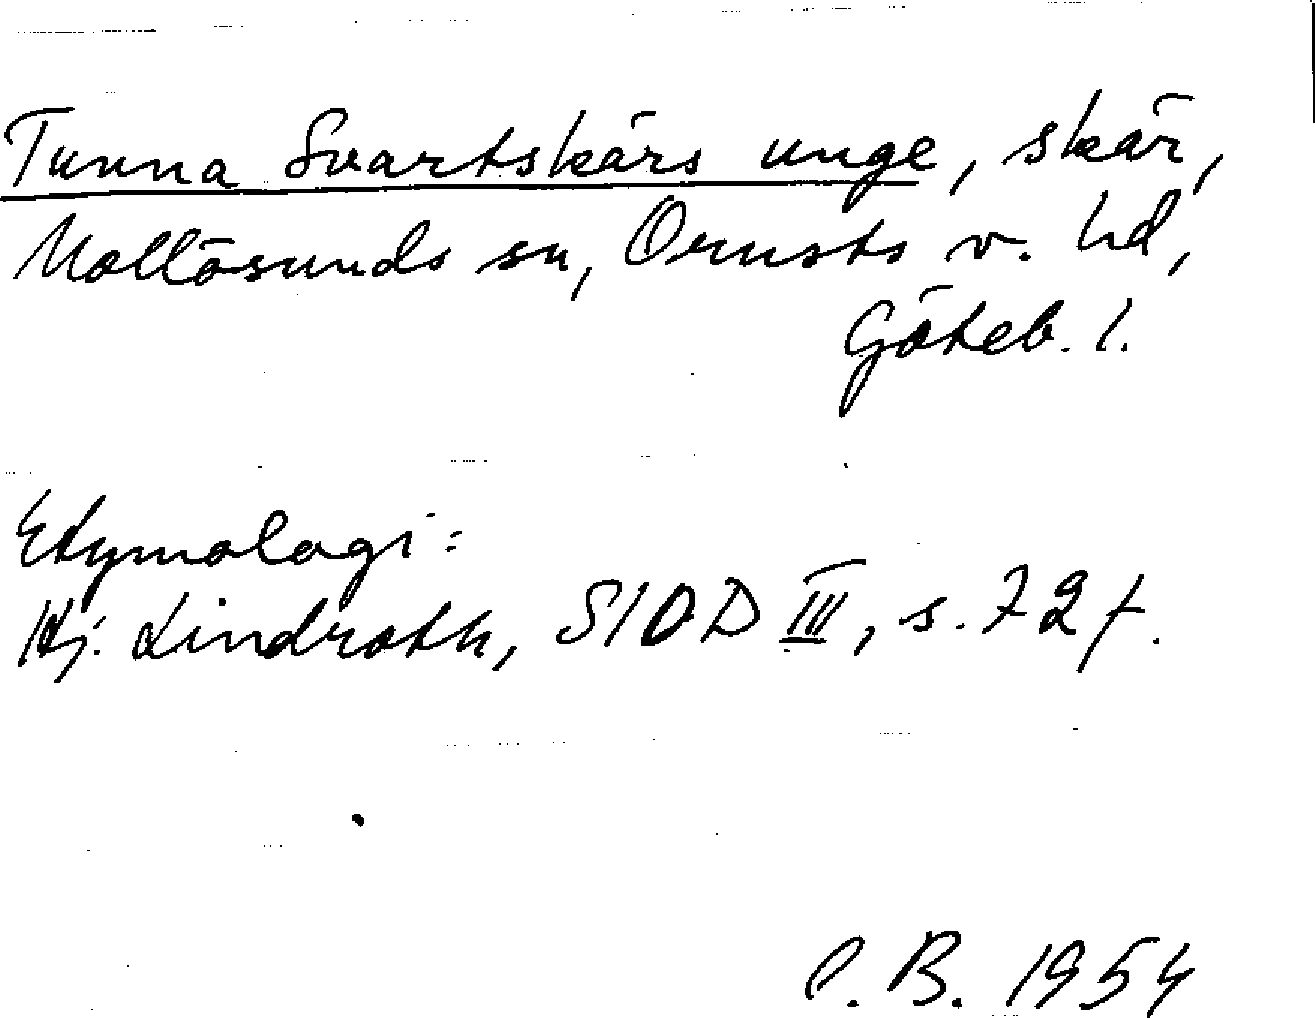 Tunna Svartskärs unge, skär,
Mollösunds sn, Orusts v. hd,
Göteb. l.
Etymologi:
Hj. Lindroth, SIOD III, s. 72 f.
C. B. 1954